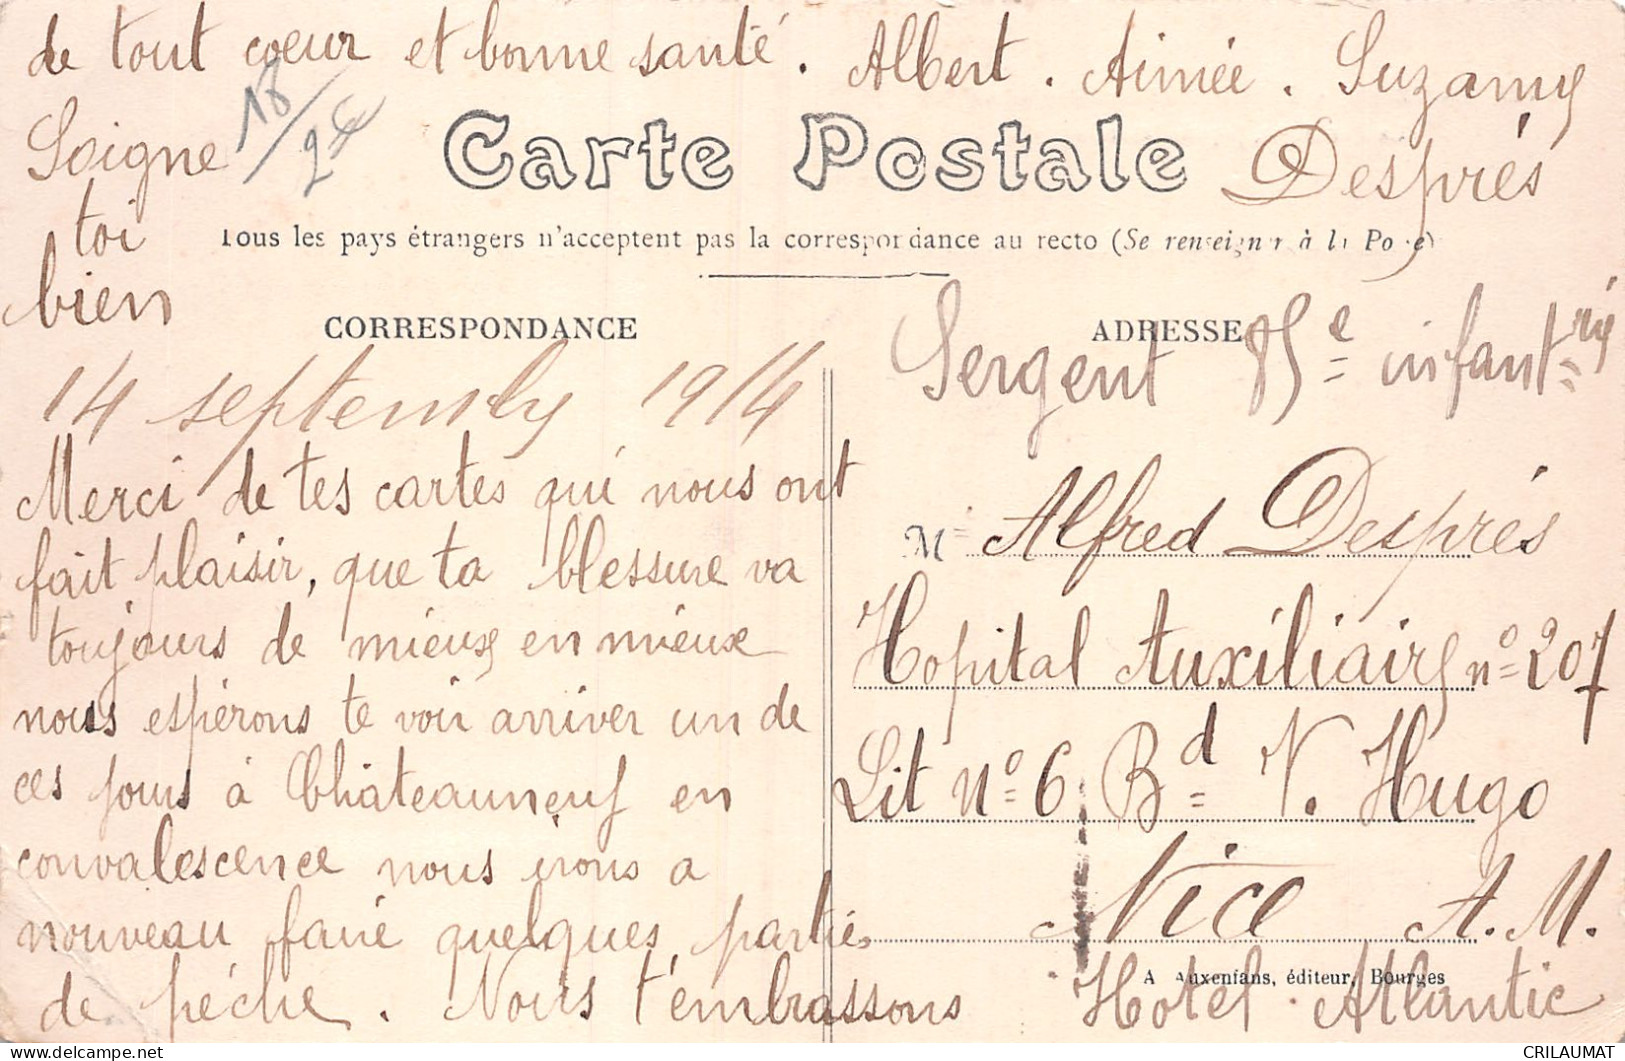 de tout coeur et bonne santé. Albert. Aimée. Suzanne
Després
Soigne
toi
bien
18/
Carte Postale
Tous les pays étrangers n'acceptent pas la correspondance au recto (Se renseigner à la Poste)
CORRESPONDANCE
14 septembre 1914
Merci de tes cartes qui nous ont
fait plaisir, que ta blessure va
toujours de mieux en mieux
nous espérons te voir arriver un de
ces jours à Châteauneuf en
convalescence nous irons a
nouveau faire quelques partie
de pêche. Nous t'embrassons
ADRESSE
Sergent 85e infantrie
M Alfred Després
Hopital Auxiliaire n° 207
Lit n° 6 Bd V. Hugo
Nice A.M.
Hotel Atlantic
A Auxenfans, éditeur, Bourges
CRILAUMAT